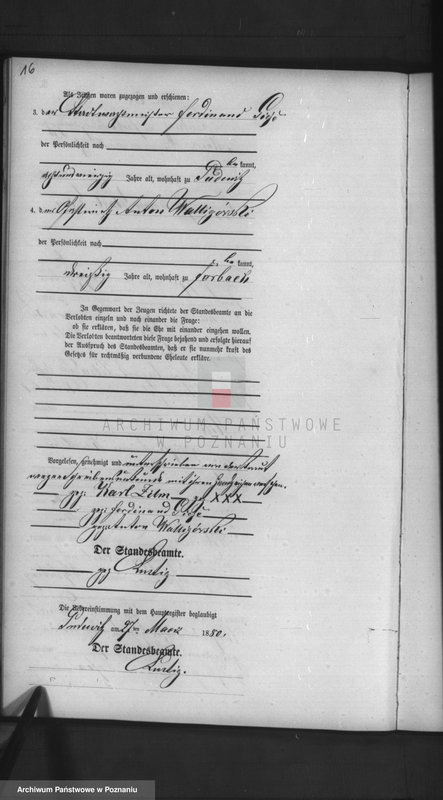 16
Als Zeugen waren zugezogen und erschienen:
3. der Stadtwachtmeister Ferdinand
der Persönlichkeit nach
bekannt,
achtundvierzig Jahre alt, wohnhaft zu Pudewitz
4. der Anton Walligórski
der Persönlichkeit nach
bekannt,
dreißig Jahre alt, wohnhaft zu Forbach
In Gegenwart der Zeugen richtete der Standesbeamte an die
Verlobten einzeln und nach einander die Frage:
ob sie erklären, daß sie die Ehe mit einander eingehen wollen.
Die Verlobten beantworteten diese Frage bejahend und erfolgte hierauf
der Ausspruch des Standesbeamten, daß er sie nunmehr kraft des
Gesetzes für rechtmäßig verbundene Eheleute erkläre.
ARCHIWUM PAŃSTWOWE
W POZNANIU
Vorgelesen, genehmigt und unterschrieben von der Braut
wegen Schreibensunkunde mit ihren Handzeichen versehen.
gez. Karl XXX
gez. Ferdinand
gez. Anton Walligórski
Der Standesbeamte.
gez
Die Uebereinstimmung mit dem Hauptregister beglaubigt
Pudewitz am 27ten März 1880.
Der Standesbeamte.
Archiwum Państwowe w Poznaniu